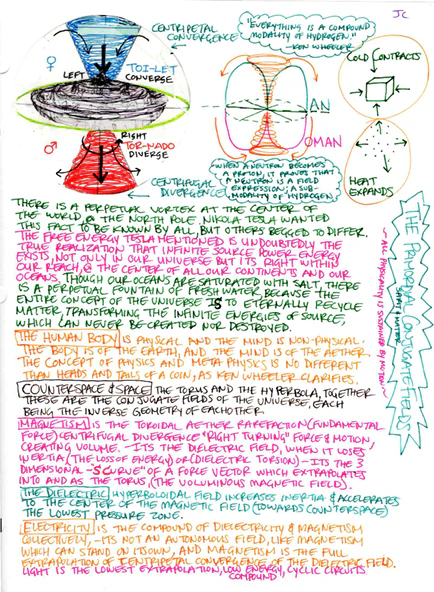 JC
CENTRIPETAL
CONVERGENCE
"EVERYTHING IS A COMPOUND
MODALITY OF HYDROGEN."
-KEN WHEELER
COLD CONTRACTS
♀
LEFT
TOI-LET
CONVERGE
AN
OMAN
RIGHT
♂
TOR-NADO
DIVERGE
CENTRIFUGAL
DIVERGENCE
WHEN A NEUTRON BECOMES
A PROTON, IT PROVES THAT
A NEUTRON IS A FIELD
EXPRESSION; A SUB-
MODALITY OF HYDROGEN.
HEAT
EXPANDS
THE PRIMORDIAL CONJUGATE FIELDS
~ALL PHYSICALITY IS SUSTAINED BY MOTION~
THERE IS A PERPETUAL VORTEX AT THE CENTER OF
THE WORLD, @ THE NORTH POLE. NIKOLA TESLA WANTED
THIS FACT TO BE KNOWN BY ALL, BUT OTHERS BEGGED TO DIFFER.
THE FREE ENERGY TESLA MENTIONED IS UNDOUBTEDLY THE
TRUE REALIZATION THAT INFINITE SOURCE POWER ENERGY
EXISTS, NOT ONLY IN OUR UNIVERSE BUT ITS RIGHT WITHIN
OUR REACH, @ THE CENTER OF ALL OUR CONTINENTS AND OUR
OCEANS. THOUGH OUR OCEANS ARE SATURATED WITH SALT, THERE
IS A PERPETUAL FOUNTAIN OF FRESH WATER, BECAUSE THE
ENTIRE CONCEPT OF THE UNIVERSE IS TO ETERNALLY RECYCLE
MATTER, TRANSFORMING THE INFINITE ENERGIES OF SOURCE,
WHICH CAN NEVER BE CREATED NOR DESTROYED.
THE HUMAN BODY IS PHYSICAL AND THE MIND IS NON-PHYSICAL.
THE BODY IS OF THE EARTH, AND THE MIND IS OF THE AETHER.
THE CONCEPT OF PHYSICS AND META PHYSICS IS NO DIFFERENT
THAN HEADS AND TAILS OF A COIN, AS KEN WHEELER CLARIFIES.
COUNTERSPACE & SPACE THE TORUS AND THE HYPERBOLA, TOGETHER
THESE ARE THE CONJUGATE FIELDS OF THE UNIVERSE, EACH
BEING THE INVERSE GEOMETRY OF EACHOTHER.
MAGNETISM IS THE TOROIDAL AETHER RAREFACTION (FUNDAMENTAL
FORCE) CENTRIFUGAL DIVERGENCE "RIGHT TURNING" FORCE & MOTION,
CREATING VOLUME. -ITS THE DIELECTRIC FIELD, WHEN IT LOSES
INERTIA (THE LOSS OF ENERGY) OR (DIELECTRIC TORSION) -ITS THE 3
DIMENSIONAL -S CURVE" OF A FORCE VECTOR WHICH EXTRAPOLATES
INTO AND AS THE TORUS, (THE VOLUMINOUS MAGNETIC FIELD).
THE DIELECTRIC HYPERBOLOIDAL FIELD INCREASES INERTIA & ACCELERATES
TO THE CENTER OF THE MAGNETIC FIELD (TOWARDS COUNTERSPACE)
THE LOWEST PRESSURE ZONE.
ELECTRICITY IS THE COMPOUND OF DIELECTRICITY & MAGNETISM
COLLECTIVELY, -ITS NOT AN AUTONOMOUS FIELD, LIKE MAGNETISM
WHICH CAN STAND ON ITS OWN, AND MAGNETISM IS THE FULL
EXTRAPOLATION OF CENTRIPETAL CONVERGENCE OF THE DIELECTRIC FIELD.
LIGHT IS THE LOWEST EXTRAPOLATION, LOW ENERGY, CYCLIC CIRCUITS
COMPOUND